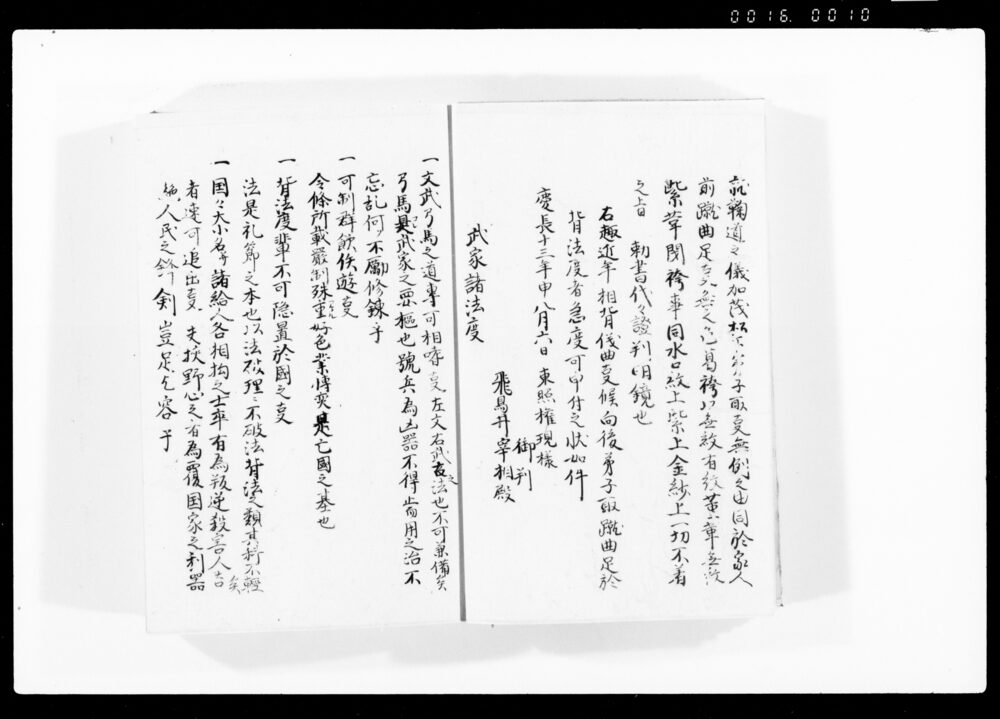 0016. 0010
就鞠道之儀加茂松下弟子取事無例之由同於家人
前蹴曲足事無之色葛袴以無紋有紋黄葦無紋
紫葦閉袴事同水口紋上紫上金紗上一切不着
之上者 勅書代々證判明鏡也
右趣近年相背儀曲事候向後弟子取蹴曲足於
背法度者急度可申付之状如件
慶長十三年申八月六日 東照権現様
御判
飛鳥井宰相殿
武家諸法度
一文武弓馬之道専可相嗜事左文右武古之法也不可兼備矣
弓馬是武家之要枢也號兵為凶器不得尚用之治不
忘乱何不励修錬乎
一可制群飲佚遊事
令條所載厳制殊重好色業博奕是亡國之基也
一背法度輩不可隠置於國之事
法是礼節之本也以法破理ミ不破法背法之類其科不軽矣
一国々大小名并諸給人各相抱之士卒有為叛逆殺害人告
者速可追出事 夫挟野心之者為覆国家之利器
絶人民之鋒剣豈足允容乎